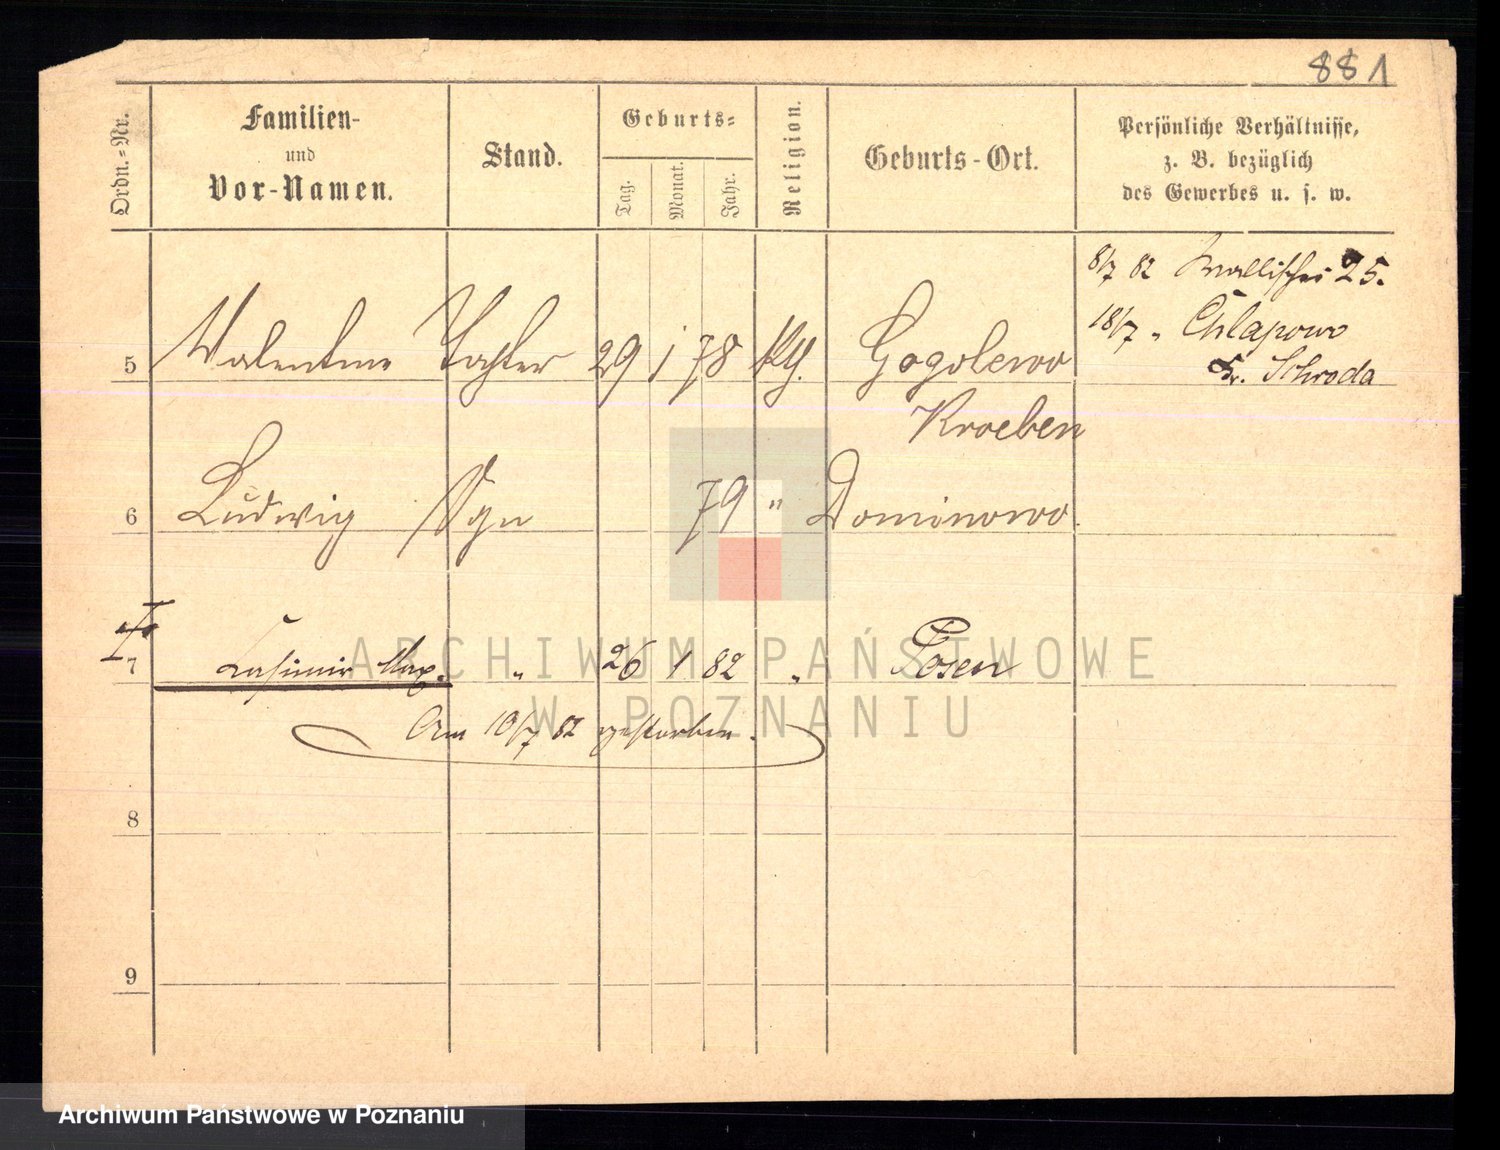 881
Ordn.-Nr.
Familien-
und
Vor-Namen.
Stand.
Geburts-
Tag.
Monat.
Jahr.
Religion.
Geburts-Ort.
Persönliche Verhältnisse,
z. B. bezüglich
des Gewerbes u. s. w.
8/7 82 Wallischei 25.
18/7 " Chlapowo
Kr. Schroda
5 Valentine Tochter 29 1 78 Kth. Gogolewo
Kroeben
6 Ludwig Sohn 79 " Dominowo.
7 Casimir Max. " 26 1 82 " Posen
Am 10/7 82 gestorben.
8
9
ARCHIWUM PAŃSTWOWE
W POZNANIU
Archiwum Państwowe w Poznaniu